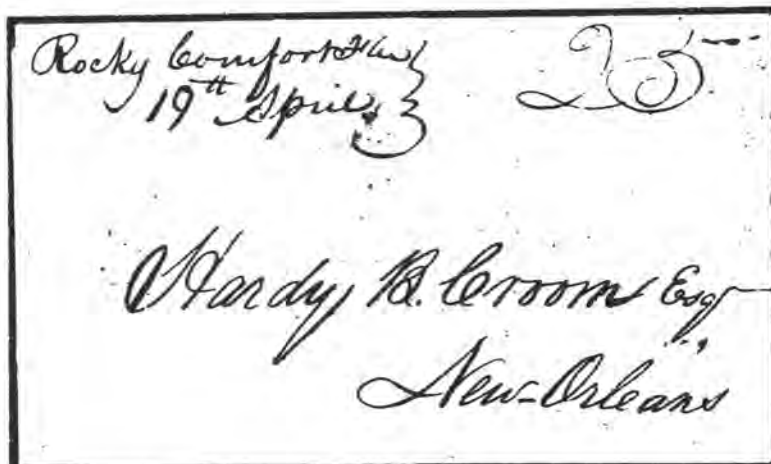 Rocky Comfort Flo
19th April
25
Hardy B. Croom Esqr
New-Orleans